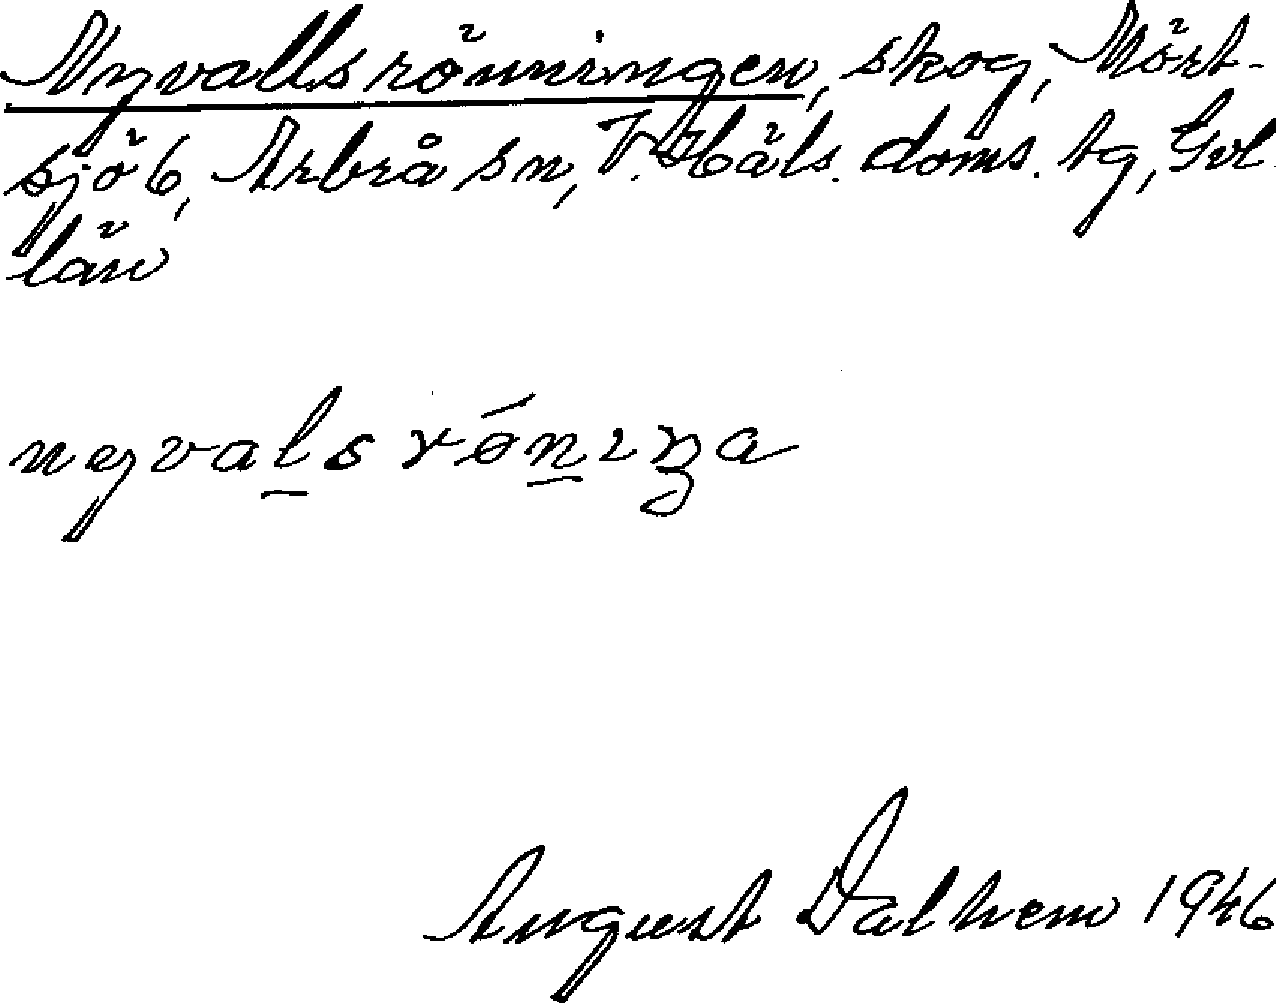 Nyvallsrönningen, skog, Mört-
sjö 6, Arbrå sn, V. Häls. doms. tg, Gvl.
län
nyvalsrǿnıŋa
August Dalhem 1946